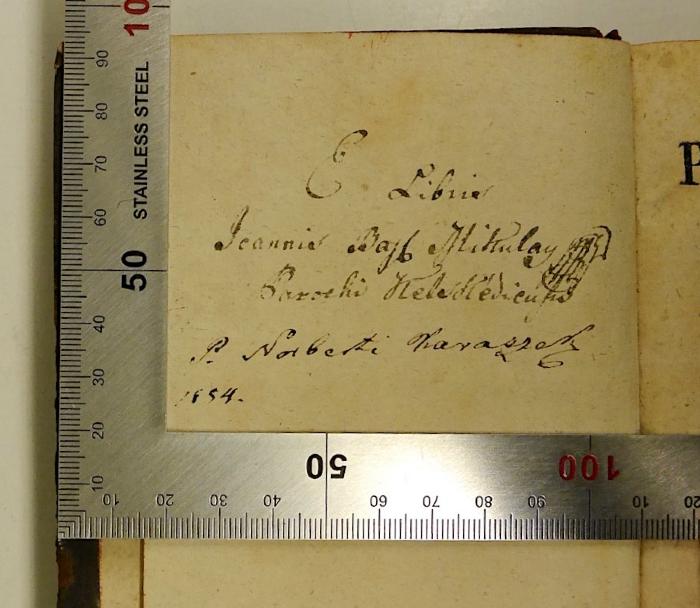 E Libris
Joannis Bapt Mikulay
Parochi
P. Norberti Karaszek
1854.
P
STAINLESS STEEL
10
90
80
70
60
50
40
30
20
10
10 20 30 40 50 60 70 80 90 100 10 20